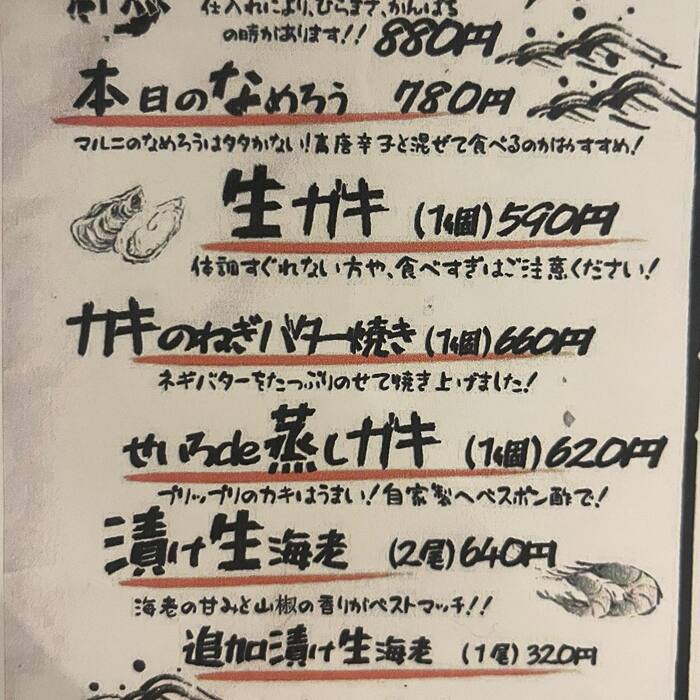 仕入れにより、ひらまさ、かんぱち
の時があります!! 880円
本日のなめろう 780円
マルニのなめろうはタタかない!高唐辛子と混ぜて食べるのがおすすめ!
生ガキ (1個)590円
体調すぐれない方や、食べすぎはご注意ください!
カキのねぎバター焼き(1個)660円
ネギバターをたっぷりのせて焼き上げました!
せいろde蒸しガキ (1個)620円
プリップリのカキはうまい!自家製ヘベスポン酢で!
漬け生海老 (2尾)640円
海老の甘みと山椒の香りがベストマッチ!!
追加漬け生海老 (1尾)320円